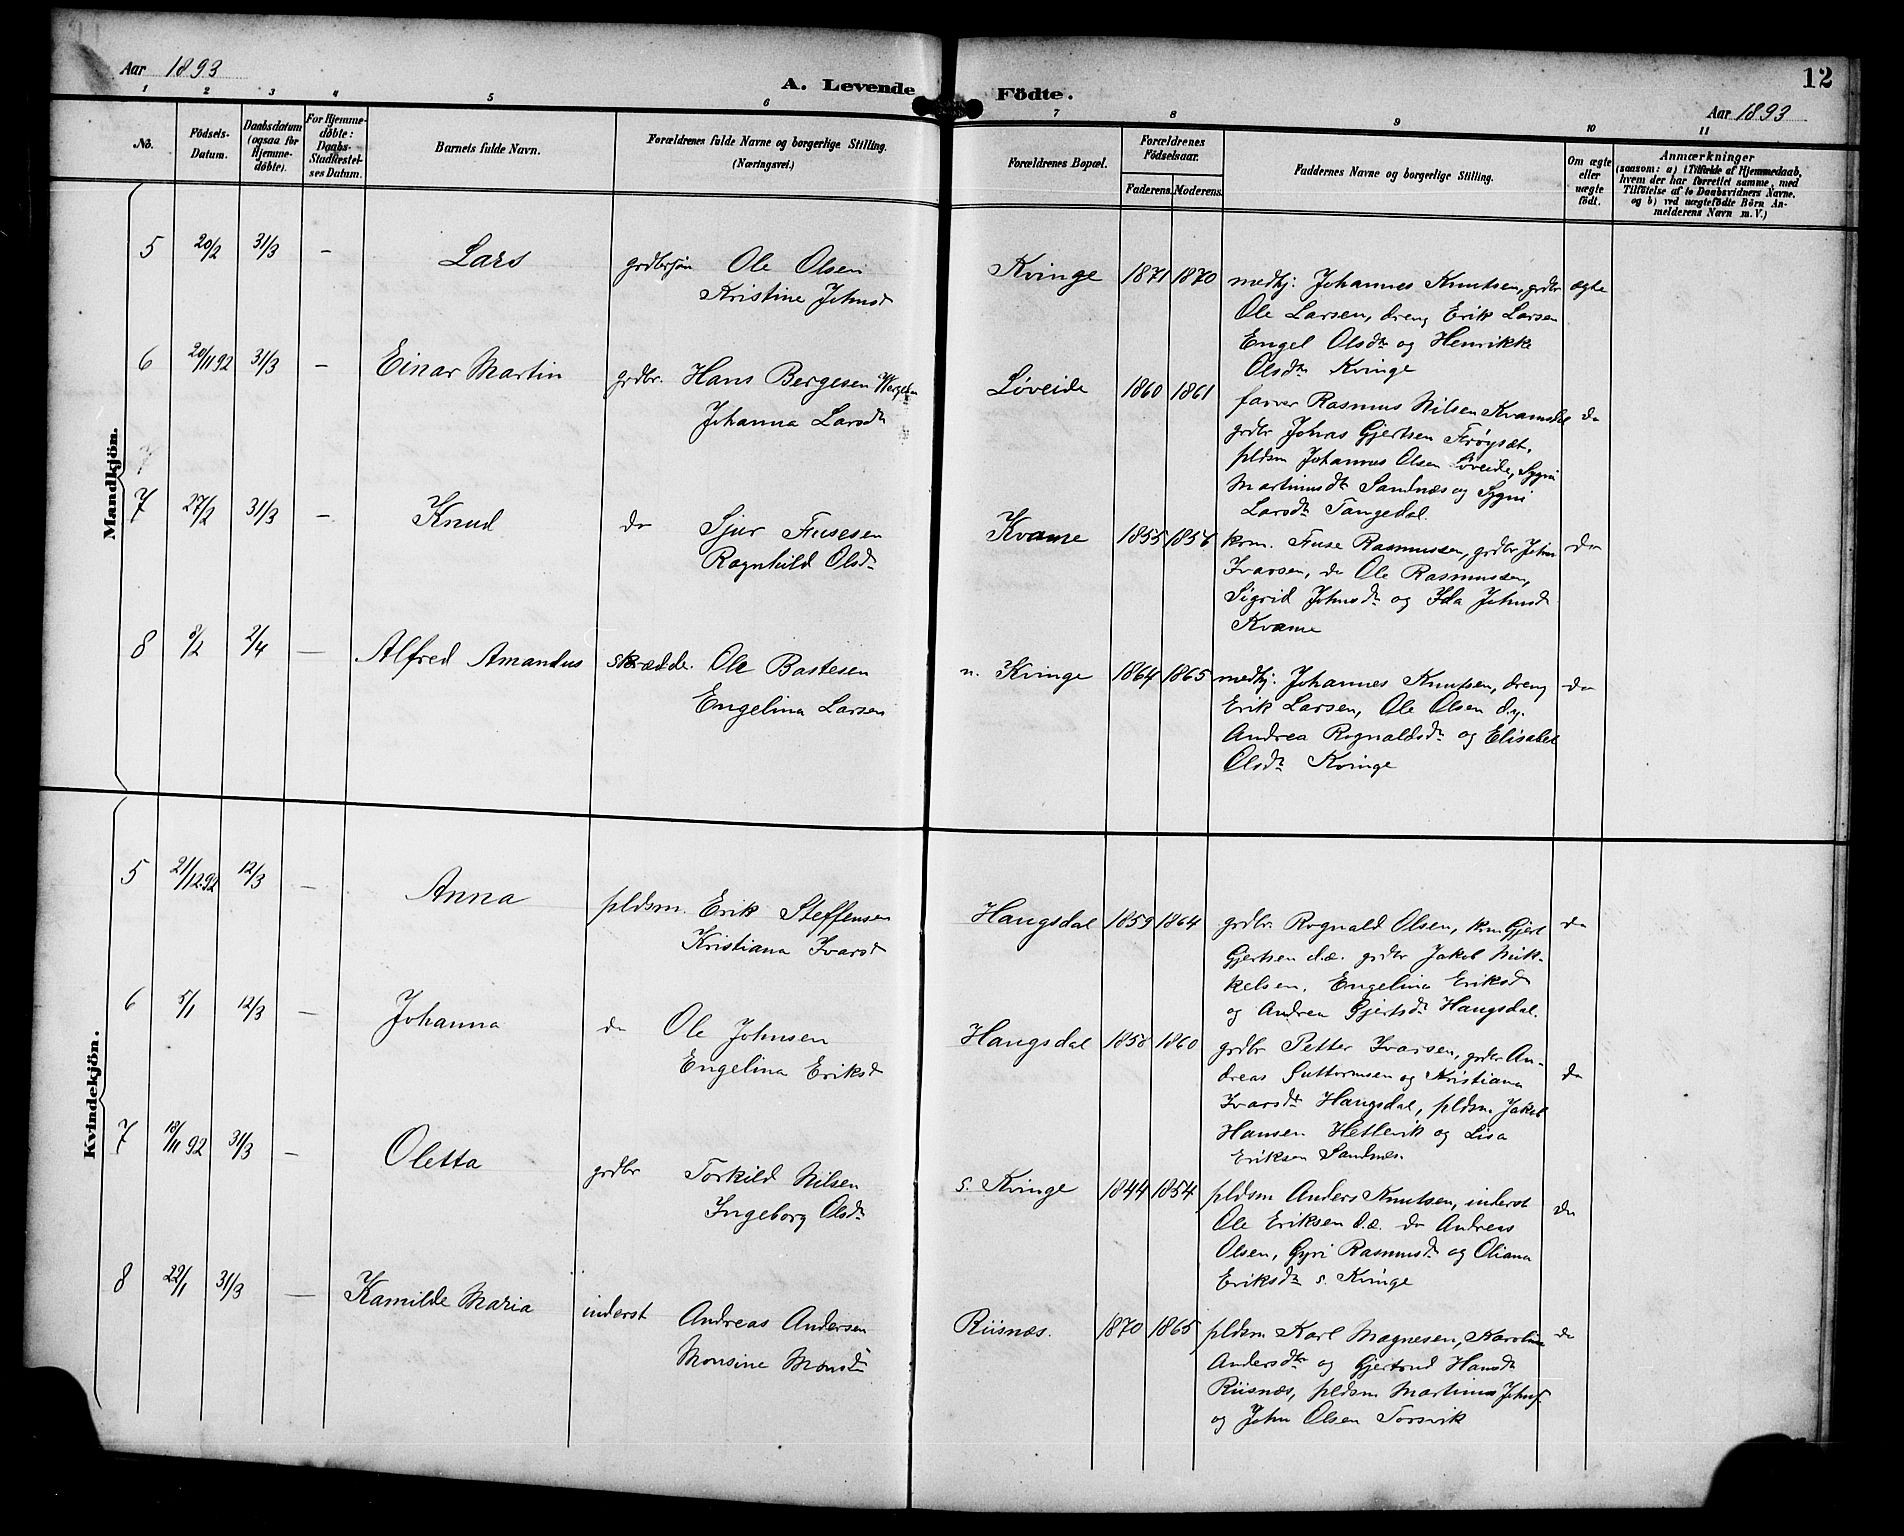 Aar 1893
A. Levende Fødte.
12
Aar 1893
1 2 3 4 5 6 7 8 9 10 11
No.
Fødsels-Datum.
Daabsdatum (ogsaa for Hjemmedøbte).
For Hjemmedøbte: Daabs-Stadfæstelses Datum.
Barnets fulde Navn.
Forældrenes fulde Navne og borgerlige Stilling. (Næringsvei.)
Forældrenes Bopæl.
Forældrenes Fødselsaar.
Faderens. Moderens.
Faddernes Navne og borgerlige Stilling.
Om ægte eller uægte født.
Anmærkninger
(saasom: a) i Tilfælde af Hjemmedaab, hvem der har forrettet samme, med Tilføielse af to Daabsvidners Navne, og b) ved uægtefødte Børn Anmelderens Navn m. V.)
Mandkjøn.
5 20/2 31/3 – Lars grdbrsøn Ole Olsen
Kristine Johnsd
Kvinge 1871 1870 medhj. Johannes Knutsen, grdbr ægte
Ole Larsen, dreng Erik Larsen
Engel Olsdtr og Henrikke
Olsdtr Kvinge
6 20/11 92 31/3 – Einar Martin grdbr. Hans Bergesen
Johanna Larsdtr
Løveide 1860 1861 farver Rasmus Nilsen Kvamsdal do
grdbr Johns Gjertsen Frøyset,
pldsm Johannes Olsen Løveide, Sygni
Martinusdtr Sandnæs og Sygni
Larsdtr Tangedal.
7
7 27/2 31/3 – Knud do Sjur Fusesen
Ragnhild Olsdtr
Kvame 1855 1856 krm. Fuse Rasmussen, grdbr John do
Ivarsen, do Ole Rasmussen,
Sigrid Johnsdtr og Ida Johnsdtr
Kvame
8 8/2 2/4 — Alfred Amandus skrædde. Ole Bastesen
Engelina Larsen
n. Kvinge 1864 1865 medhj. Johannes Knutsen, dreng do
Erik Larsen, Ole Olsen d.y.
Andrea Rognaldsdtr og Elisabet
Olsdtr Kvinge
Kvindekjøn.
5 21/12 92 12/3 – Anna pldsm. Erik Steffensen
Kristiana Ivarsd
Haugsdal 1859 1864 grdbr. Rognald Olsen, krm Gjert do
Gjertsen d.æ. grdbr Jakob Mik-
kelsen, Engelina Eriksd
og Andrea Gjertsdtr Haugsdal.
6 5/1 12/3 – Johanna do Ole Johnsen
Engelina Eriksd
Haugsdal 1858 1860 grdbr Petter Ivarsen, grdbr An- do
dreas Guttormsen og Kristiana
Ivarsdtr Haugsdal, pldsm. Jakob
Hansen Hetlevik og Lisa
Eriksen Sandnes.
7 18/11 92 31/3 – Oletta grdbr Torkild Nilsen
Ingeborg Olsdtr
s. Kvinge 1844 1854 pldsm Anders Knutsen, inderst do
Ole Eriksen d.æ. do Andreas
Olsen, Gyri Rasmusdtr og Oliana
Eriksdtr s. Kvinge
8 22/1 31/3 — Kamilde Maria inderst Andreas Andersen
Monsine Monsdtr
Riisnæs. 1870 1865 pldsm Karl Magnesen, Karoline do
Andersdtr og Gjertrud Hansdtr
Riisnæs, pldsm Martinus Johns.
og John Olsen Torsvik